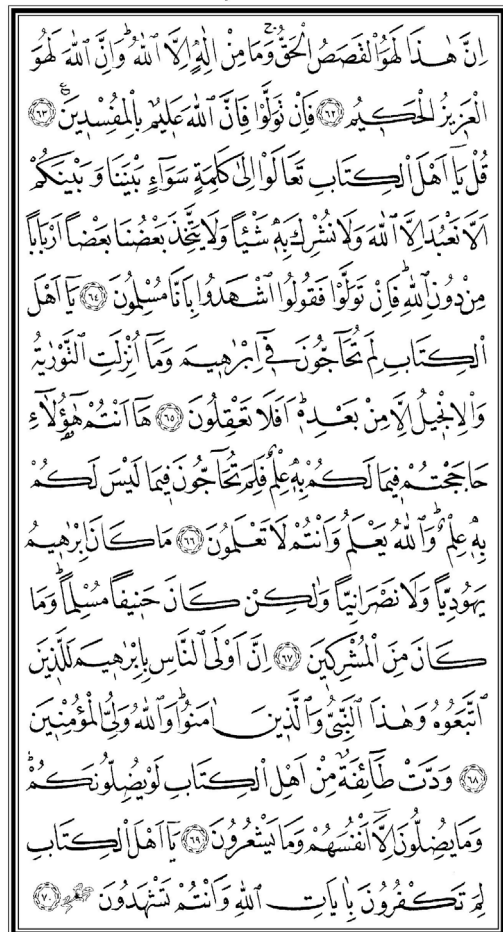 اِنَّ هٰذَا لَهُوَ الْقَصَصُ الْحَقُّۚ وَمَا مِنْ اِلٰهٍ اِلَّا اللّٰهُۜ وَاِنَّ اللّٰهَ لَهُوَ
الْعَزٖيزُ الْحَكٖيمُ ﴿٦٢﴾ فَاِنْ تَوَلَّوْا فَاِنَّ اللّٰهَ عَلٖيمٌ بِالْمُفْسِدٖينَࣖ ﴿٦٣﴾
قُلْ يَٓا اَهْلَ الْكِتَابِ تَعَالَوْا اِلٰى كَلِمَةٍ سَوَٓاءٍ بَيْنَنَا وَبَيْنَكُمْ
اَلَّا نَعْبُدَ اِلَّا اللّٰهَ وَلَا نُشْرِكَ بِهٖ شَيْـًٔا وَلَا يَتَّخِذَ بَعْضُنَا بَعْضًا اَرْبَابًا
مِنْ دُونِ اللّٰهِۜ فَاِنْ تَوَلَّوْا فَقُولُوا اشْهَدُوا بِاَنَّا مُسْلِمُونَ ﴿٦٤﴾ يَٓا اَهْلَ
الْكِتَابِ لِمَ تُحَٓاجُّونَ فٖٓى اِبْرٰهٖيمَ وَمَٓا اُنْزِلَتِ التَّوْرٰيةُ
وَالْاِنْجٖيلُ اِلَّا مِنْ بَعْدِهٖۜ اَفَلَا تَعْقِلُونَ ﴿٦٥﴾ هَٓا اَنْتُمْ هٰٓؤُ۬لَٓاءِ
حَاجَجْتُمْ فٖيمَا لَكُمْ بِهٖ عِلْمٌ فَلِمَ تُحَٓاجُّونَ فٖيمَا لَيْسَ لَكُمْ
بِهٖ عِلْمٌۜ وَاللّٰهُ يَعْلَمُ وَاَنْتُمْ لَا تَعْلَمُونَ ﴿٦٦﴾ مَا كَانَ اِبْرٰهٖيمُ
يَهُودِيًّا وَلَا نَصْرَانِيًّا وَلٰكِنْ كَانَ حَنٖيفًا مُسْلِمًاۜ وَمَا
كَانَ مِنَ الْمُشْرِكٖينَ ﴿٦٧﴾ اِنَّ اَوْلَى النَّاسِ بِاِبْرٰهٖيمَ لَلَّذٖينَ
اتَّبَعُوهُ وَهٰذَا النَّبِىُّ وَالَّذٖينَ اٰمَنُواۜ وَاللّٰهُ وَلِىُّ الْمُؤْمِنٖينَ
﴿٦٨﴾ وَدَّتْ طَٓائِفَةٌ مِنْ اَهْلِ الْكِتَابِ لَوْ يُضِلُّونَكُمْۜ
وَمَا يُضِلُّونَ اِلَّٓا اَنْفُسَهُمْ وَمَا يَشْعُرُونَ ﴿٦٩﴾ يَٓا اَهْلَ الْكِتَابِ
لِمَ تَكْفُرُونَ بِاٰيَاتِ اللّٰهِ وَاَنْتُمْ تَشْهَدُونَ ﴿٧٠﴾